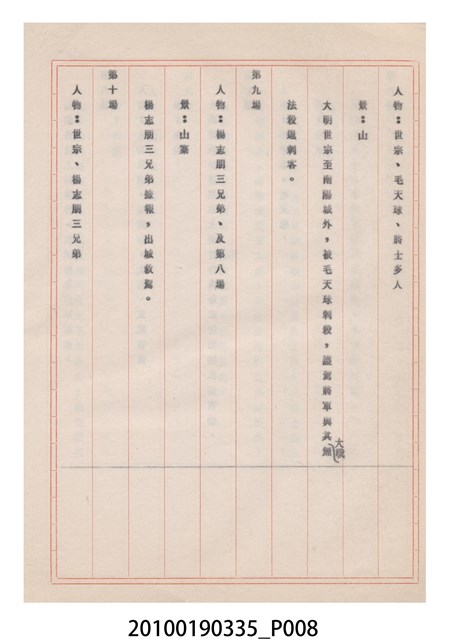 人物:世宗、毛天球、騎士多人
景:山
大明世宗至南陽城外,被毛天球刺殺,護駕將軍與其大戰無
法殺退刺客。
第九場
人物:楊志朋三兄弟、及第八場
景:山寨
楊志朋三兄弟據報,出城救駕。
第十場
人物:世宗、楊志朋三兄弟
20100190335_P008